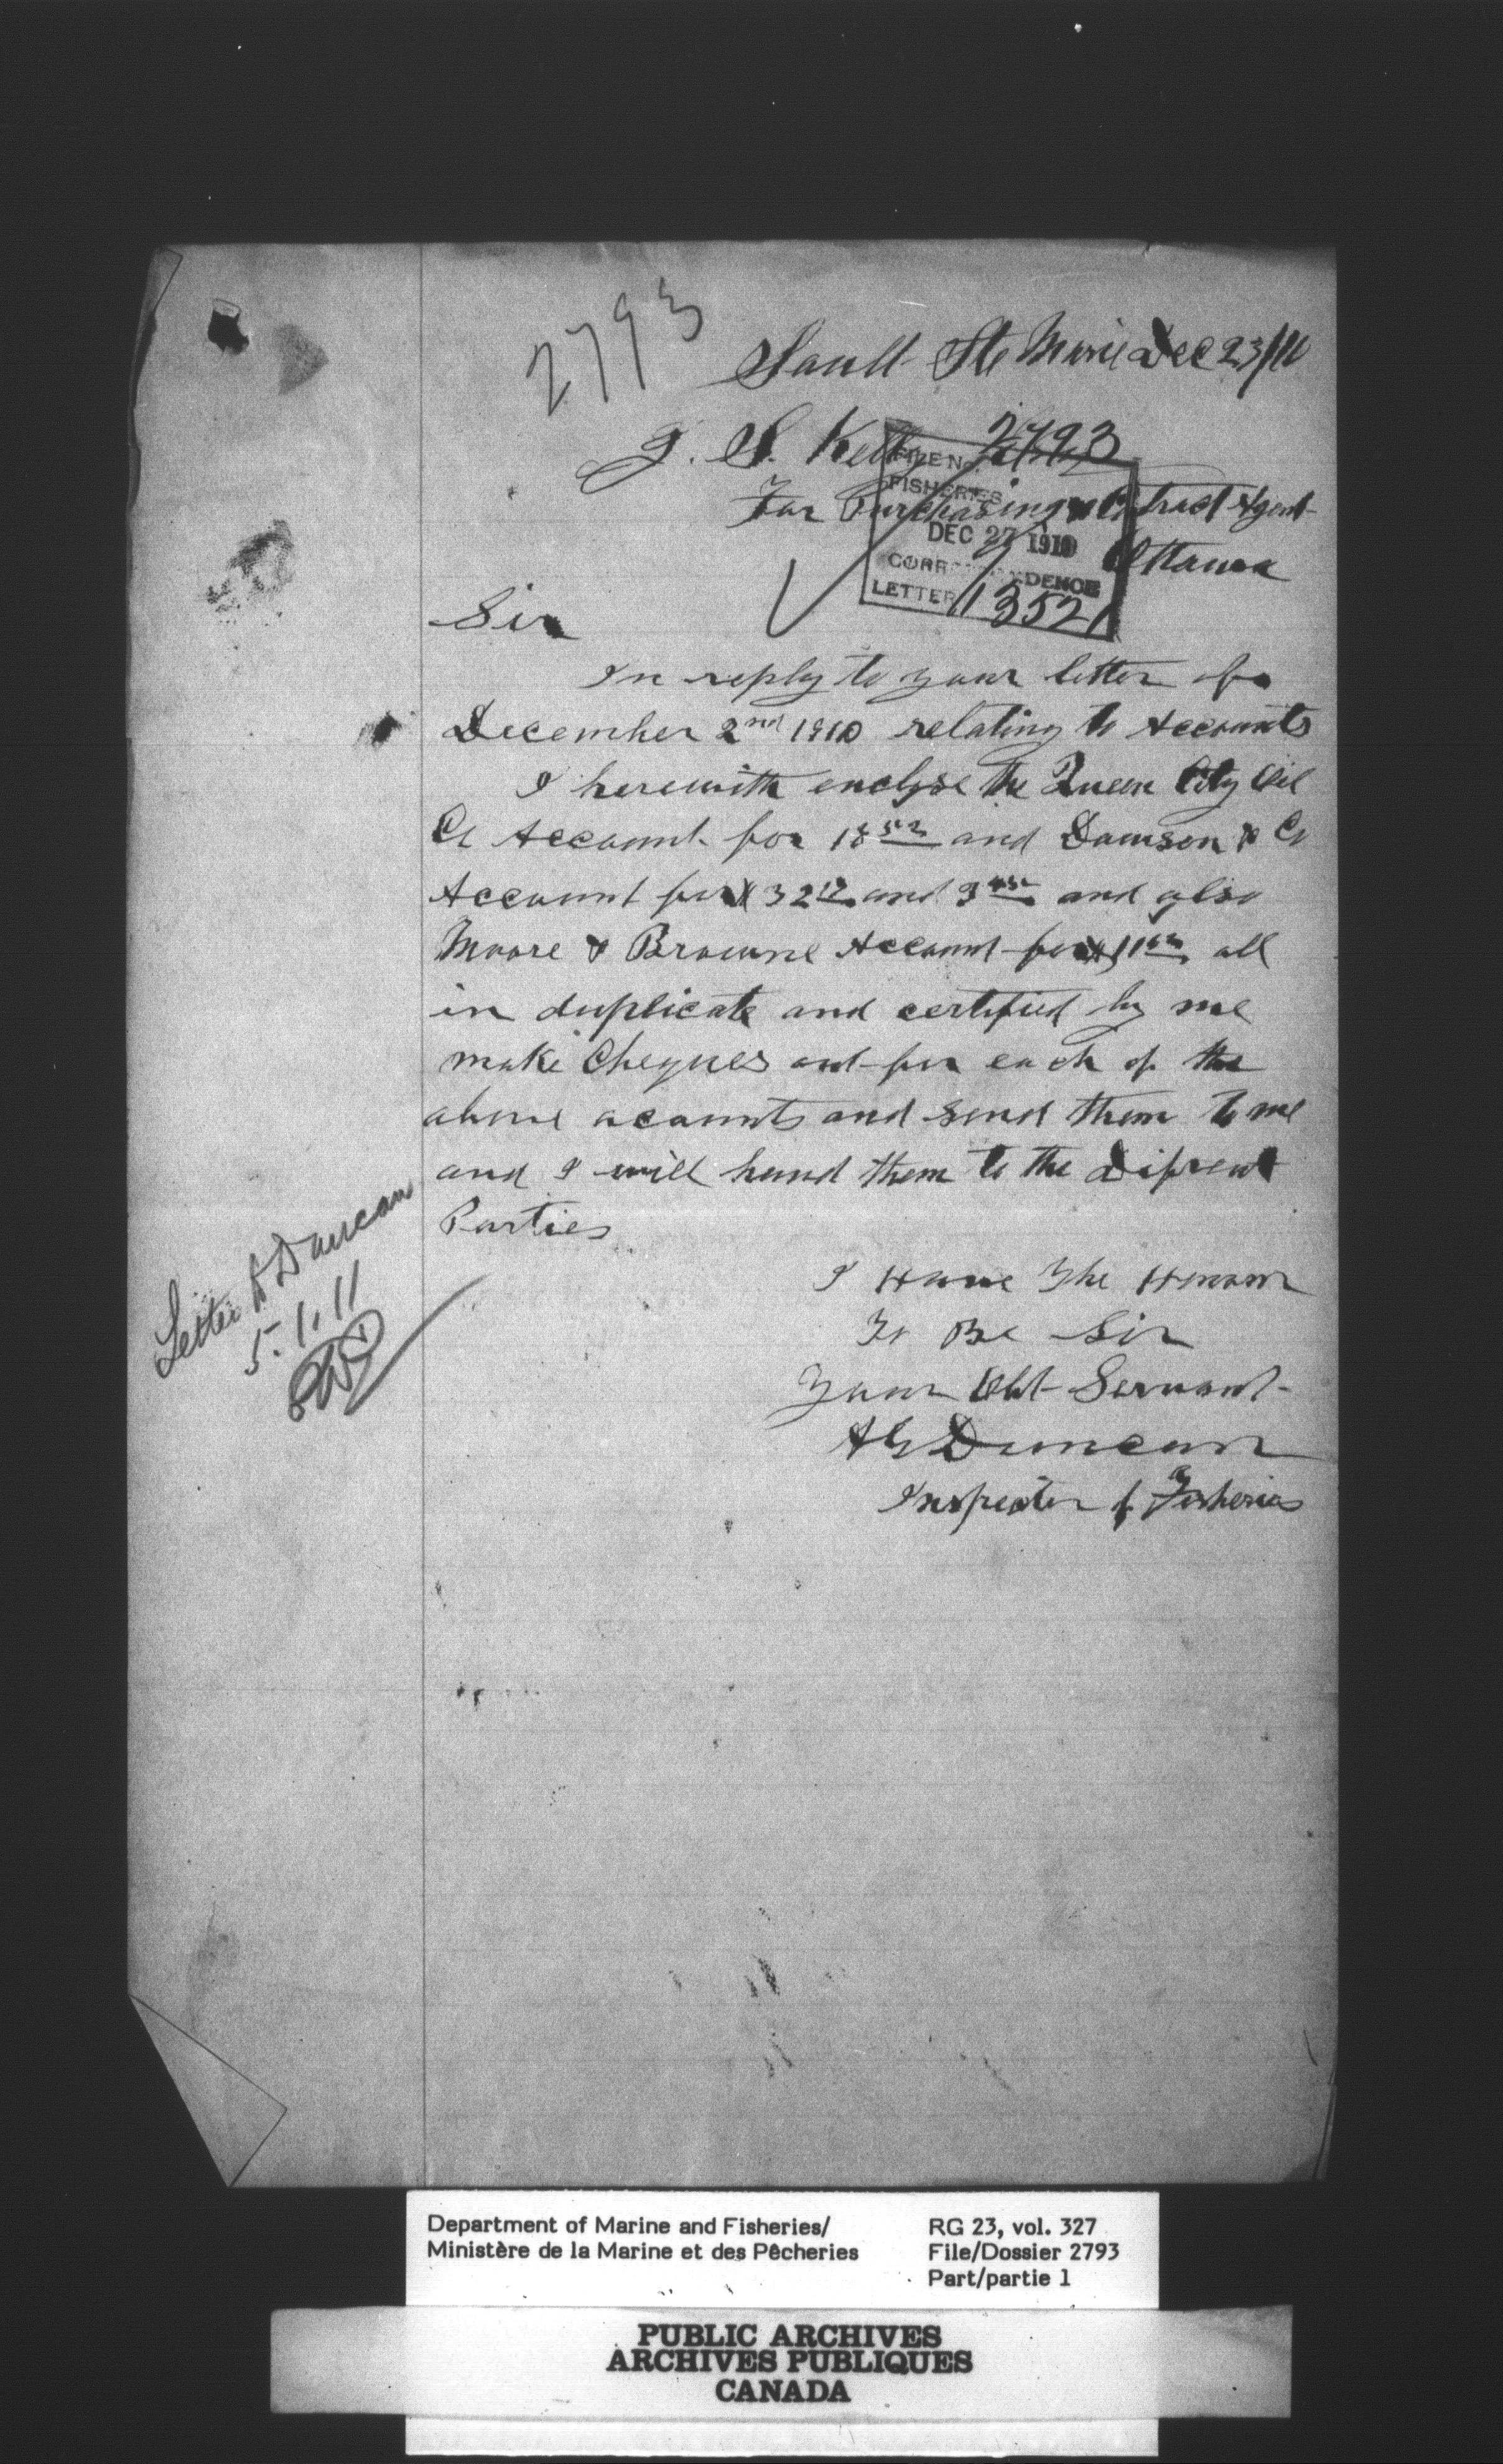 2793
Sault Ste Marie Dec 23/10
J. S. Kelly
For Purchasing & Contract Agent
Ottawa
FILE No. 2793
FISHERIES
DEC 27 1910
CORRESPONDENCE
LETTER 13521
Sir
In reply to your letter of
December 2nd 1910 relating to Accounts
I herewith enclose the Queen City Oil
Co Account for 18 52 and Dawson & Co
Account for $ 32 and 3 and also
Moore & Browne Account for $11 all
in duplicate and certified by me
make Cheques out for each of the
above acounts and send them to me
and I will hand them to the Difrent
Parties
I Have The Honour
To Be Sir
Your Obt Servant
A G Duncan
Inspector of Fisheries
Letter to Duncan
5.1.11
Department of Marine and Fisheries/
Ministère de la Marine et des Pêcheries
RG 23, vol. 327
File/Dossier 2793
Part/partie 1
PUBLIC ARCHIVES
ARCHIVES PUBLIQUES
CANADA